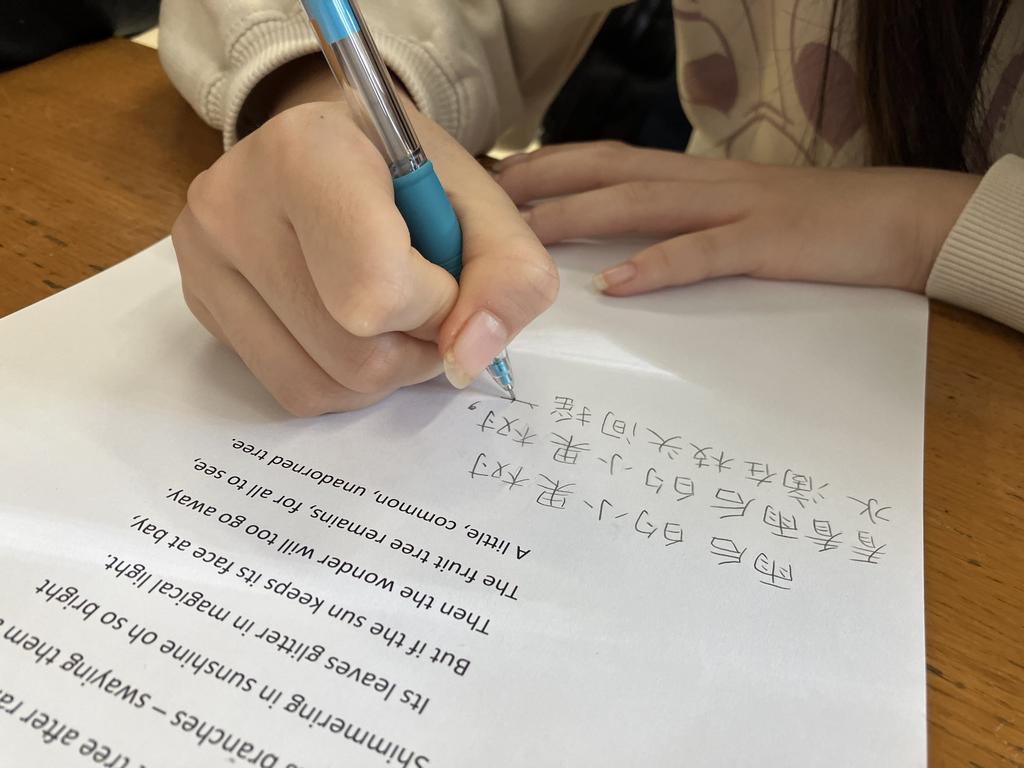 tree after
branches – swaying them
Shimmering in sunshine oh so bright
Its leaves glitter in magical light.
But if the sun keeps its face at bay,
Then the wonder will too go away.
The fruit tree remains, for all to see,
A little, common, unadorned tree.
雨后的小果树
看看雨后的小果树,
水滴在枝头间摇